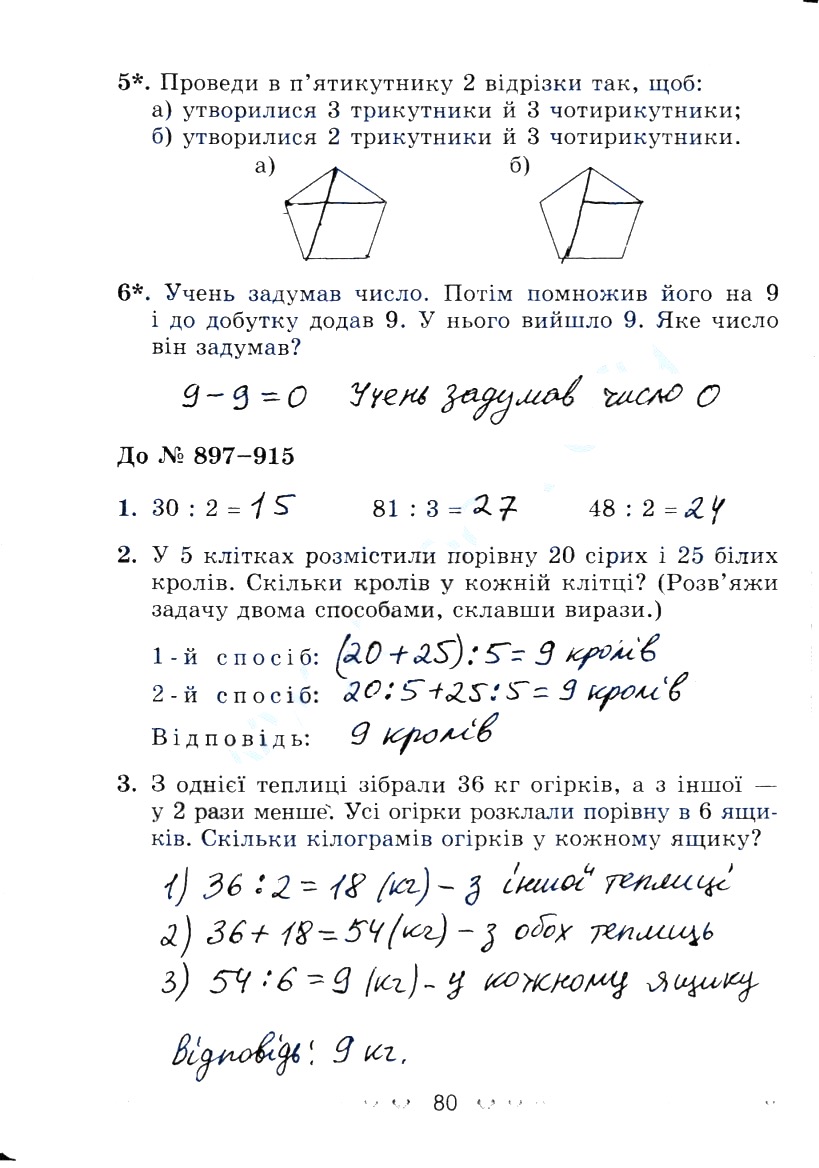 5*. Проведи в п’ятикутнику 2 відрізки так, щоб:
а) утворилися 3 трикутники й 3 чотирикутники;
б) утворилися 2 трикутники й 3 чотирикутники.
а) б)
6*. Учень задумав число. Потім помножив його на 9
і до добутку додав 9. У нього вийшло 9. Яке число
він задумав?
9 – 9 = 0 Учень задумав число 0
До № 897–915
1. 30 : 2 = 15 81 : 3 = 27 48 : 2 = 24
2. У 5 клітках розмістили порівну 20 сірих і 25 білих
кролів. Скільки кролів у кожній клітці? (Розв’яжи
задачу двома способами, склавши вирази.)
1-й спосіб: (20+25):5= 9 кролів
2-й спосіб: 20:5+25:5= 9 кролів
Відповідь: 9 кролів
3. З однієї теплиці зібрали 36 кг огірків, а з іншої —
у 2 рази менше. Усі огірки розклали порівну в 6 ящи-
ків. Скільки кілограмів огірків у кожному ящику?
1) 36 : 2 = 18 (кг) – з іншої теплиці
2) 36 + 18 = 54 (кг) – з обох теплиць
3) 54 : 6 = 9 (кг) – у кожному ящику
Відповідь: 9 кг.
80